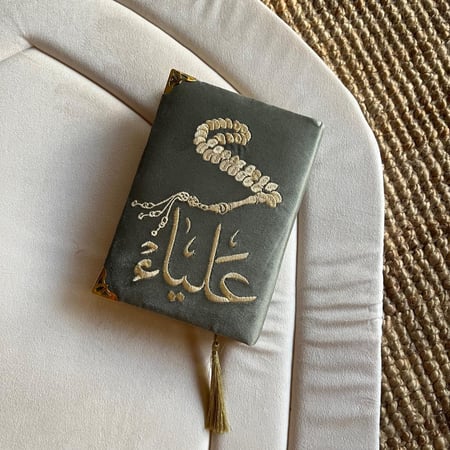 عَلياءْ